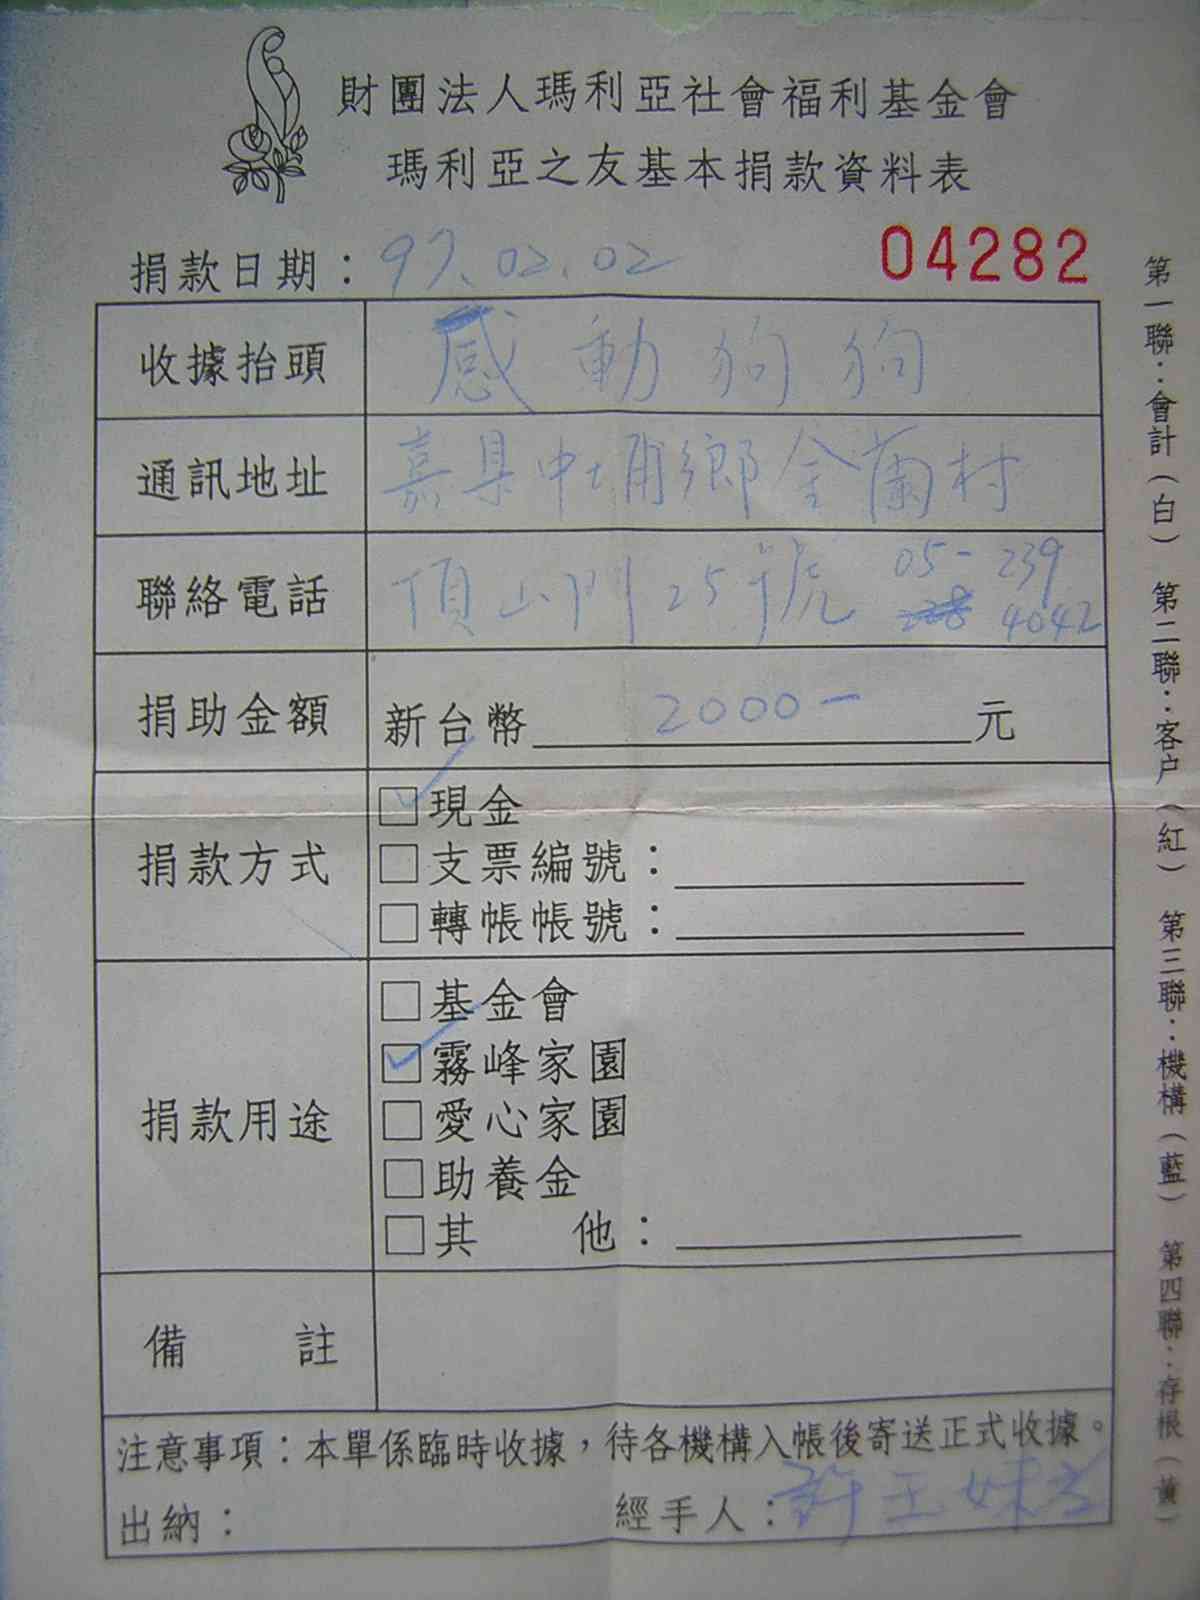 財團法人瑪利亞社會福利基金會
瑪利亞之友基本捐款資料表
捐款日期：97.02.02
04282
收據抬頭 感動狗狗
通訊地址 嘉县中埔鄉金蘭村
聯絡電話 頂山門25號 05-239
4042
捐助金額 新台幣 2000- 元
捐款方式
□現金
□支票編號：
□轉帳帳號：
捐款用途
□基金會
□霧峰家園
□愛心家園
□助養金
□其 他：
備 註
注意事項：本單係臨時收據，待各機構入帳後寄送正式收據。
出納： 經手人：許玉妹
第一聯：會計（白） 第二聯：客户（紅） 第三聯：機構（藍） 第四聯：存根（黃）